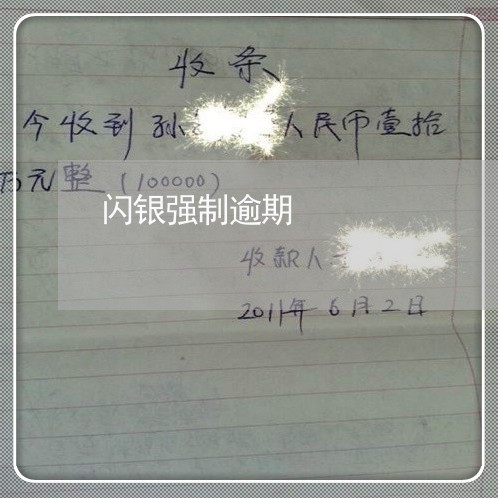 收条
今收到孙 人民币壹拾
万元整(100000)
闪银强制逾期
收款人
2011年6月2日